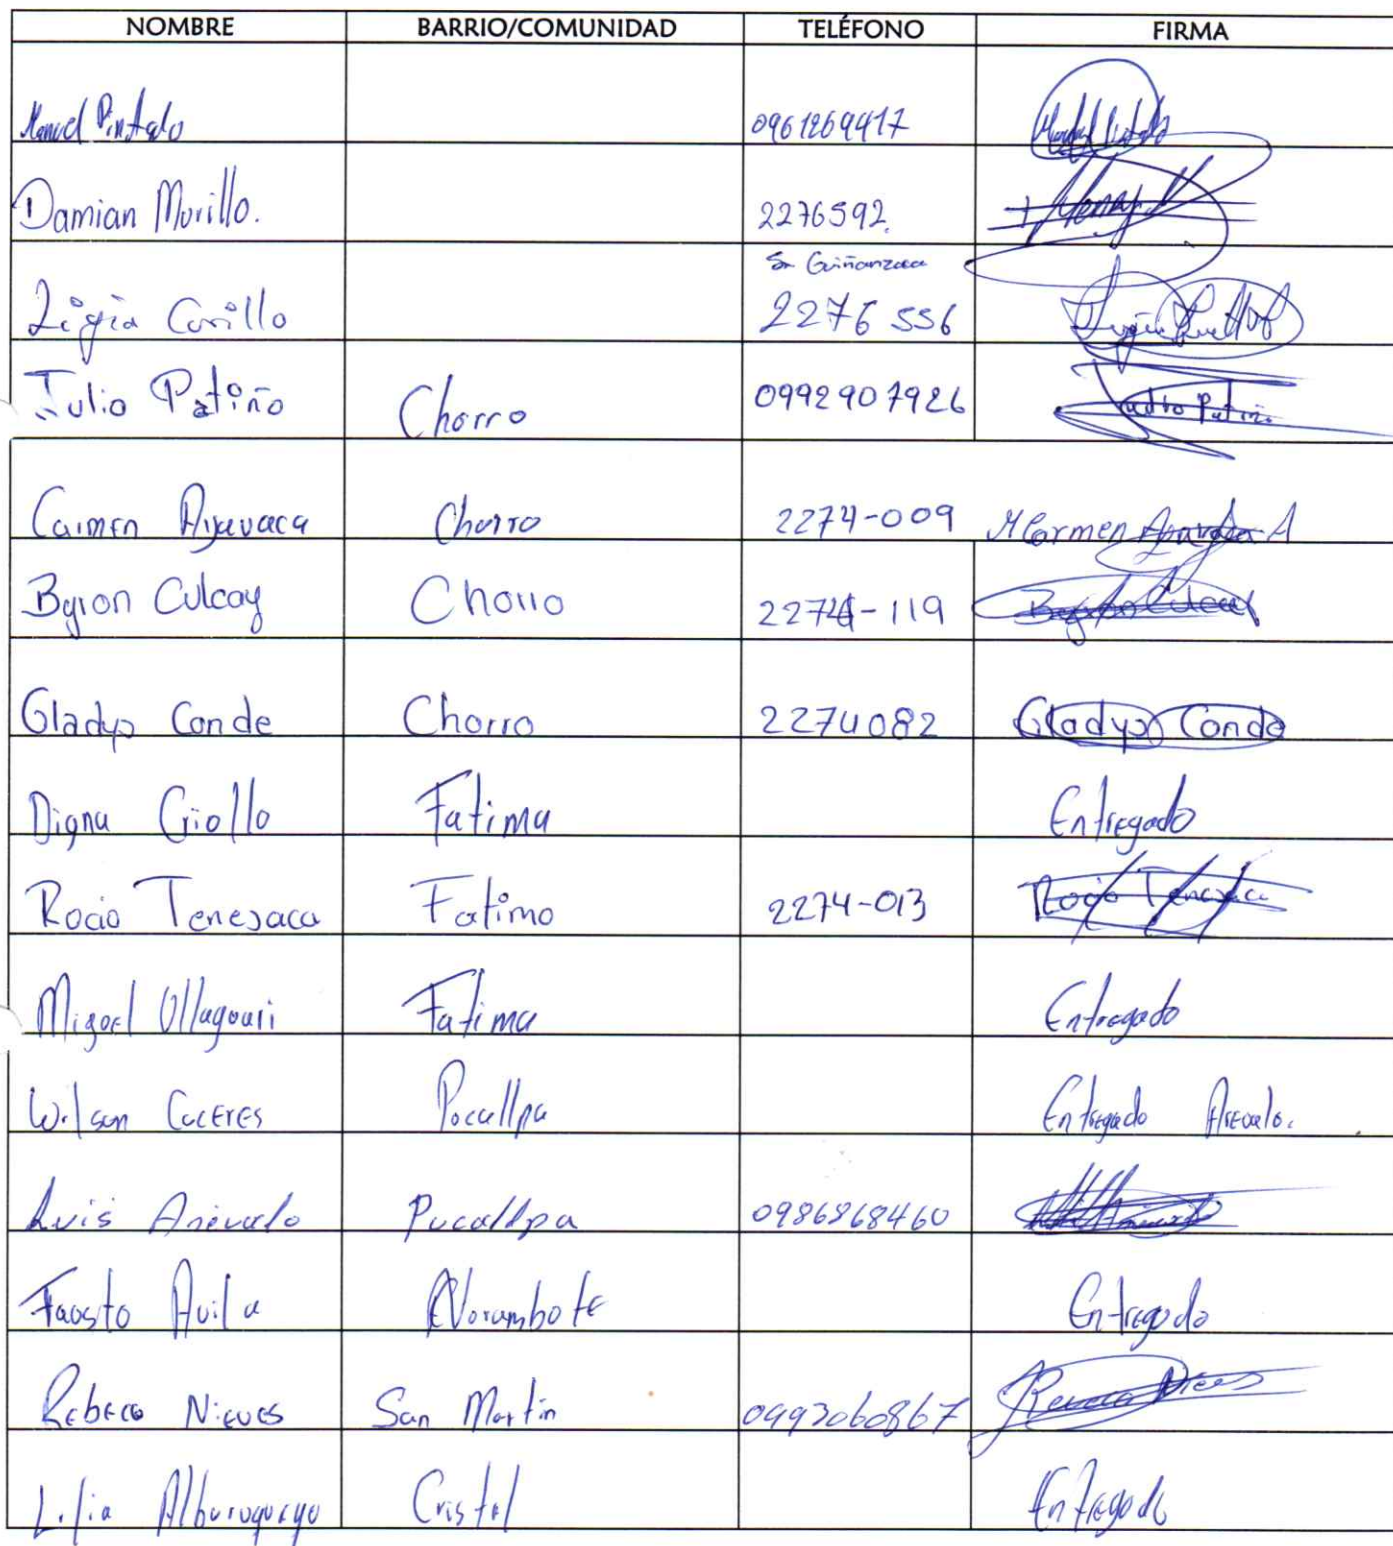 NOMBRE BARRIO/COMUNIDAD TELÉFONO FIRMA
Manuel Pintado 0961269417
Damian Morillo. 2276592.
Sr Guiñanzaca
Ligia Carillo 2276 556
Julio Patiño Chorro 0992907926 Julio Patiño
Carmen Ayavaca Chorro 2274-009 M Carmen A
Byron Culcay Chorro 2274-119 Culcay
Gladys Conde Chorro 2274082 Gladys Conde
Digna Criollo Fatima Entregado
Rocio Tenesaca Fatima 2274-013 Rocio Tenesaca
Migoel Ullaguari Fatima Entregado
Wilson Caceres Pocallpa Entregado Arevalo.
Luis Arévalo Pucallpa 0986868460
Faosto Avila Entregado
Rebeca Nieves San Martin 0993060867
Lilia Alburoqueque Cristal Entregado